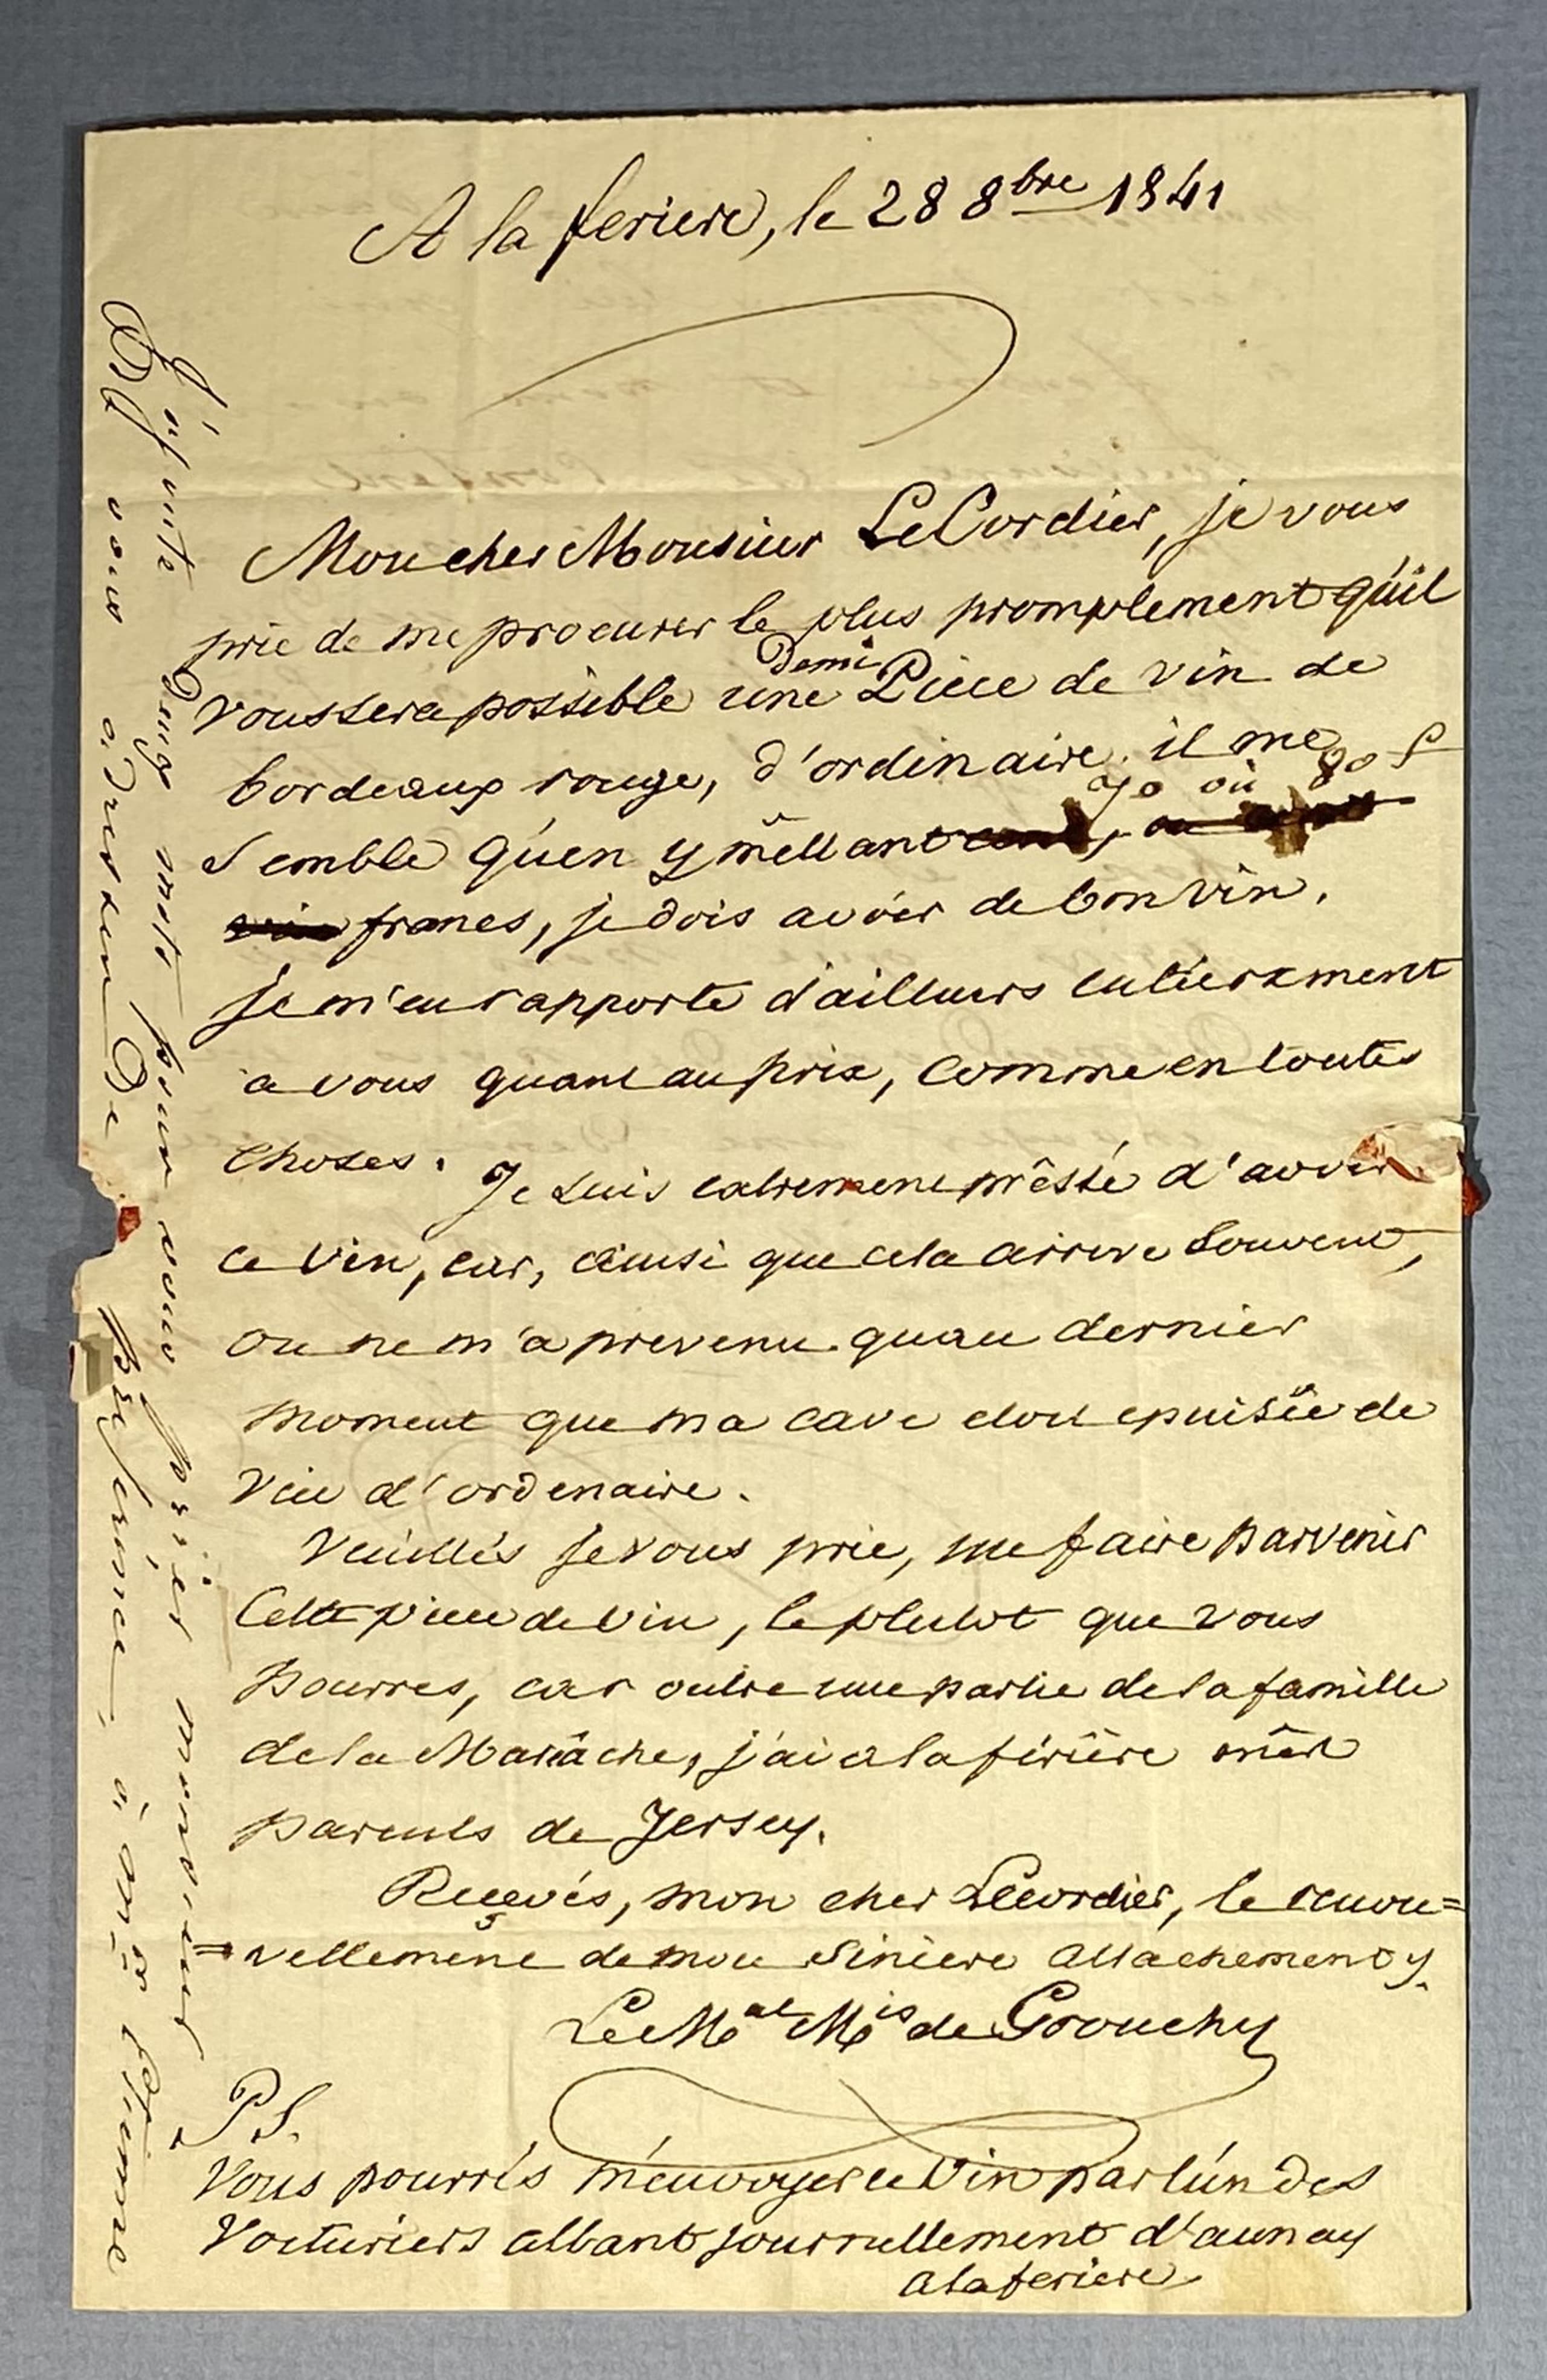 A la feriere, le 28 8bre 1841
Mon cher Monsieur LeCordier, je vous
prie de me procurer le plus promptement qu'il
vous sera possible une Demi Pièce de vin de
bordeaux rouge, d'ordinaire. il me
Semble qu'en y mêttant 70 ou 80 f
francs, je dois avoir de bon vin.
je m'en rapporte d'ailleurs entierement
a vous quant au prix, comme en toutes
choses. Je suis extremement préssé d'avoir
ce vin, car, ainsi que cela arrive souvent,
on ne m'a prevenu qu'au dernier
moment que ma cave etoit epuisée de
vin d'ordenaire.
Veuillés je vous prie, me faire parvenir
Cette pièce de vin, le plutot que vous
pourres, car outre une partie de la famille
de la Marâche, j'ai a la férière mes
parents de Jersey.
Reçevés, mon cher Lecordier, le renou=
=vellement de mon sincere attachement
Le Mal Mis de Grouchy
P.S.
Vous pourrés m'envoyer ce vin par l'un des
Voituriers allant journellement d'aunay
a la feriere
J'ajoute Deux mots pour vous prier monsieur
De vous adresser De préférence à Mr Etienne